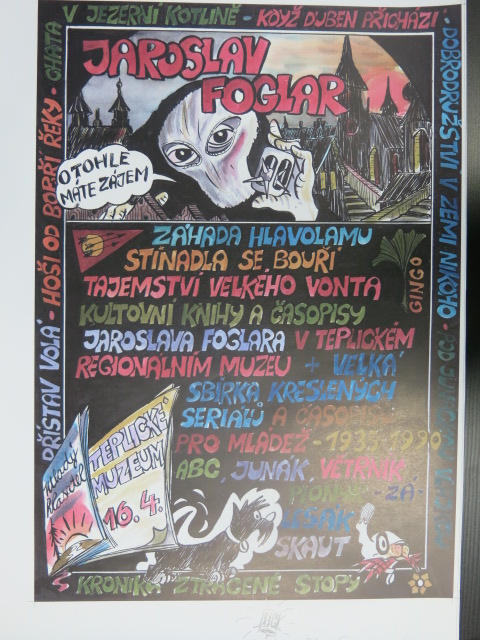 V JEZERNÍ KOTLINĚ - KDYŽ DUBEN PŘICHÁZÍ -
DOBRODRUŽSTVÍ V ZEMI NIKOHO -
PŘÍSTAV VOLÁ - HOŠI OD BOBŘÍ ŘEKY - CHATA
JAROSLAV
FOGLAR
O TOHLE
MÁTE ZÁJEM
ZÁHADA HLAVOLAMU
STÍNADLA SE BOUŘÍ
TAJEMSTVÍ VELKÉHO VONTA
KULTOVNÍ KNIHY A ČASOPISY
JAROSLAVA FOGLARA V TEPLICKÉM
REGIONÁLNÍM MUZEU + VELKÁ
SBÍRKA KRESLENÝCH
SERIÁLŮ A ČASOPISŮ
PRO MLÁDEŽ - 1935-1990
ABC, JUNÁK, VĚTRNÍK,
PIONÝR - ZÁ-
LESÁK
SKAUT
GINGO
TEPLICKÉ
MUZEUM
16.4.
KRONIKA ZTRACENÉ STOPY